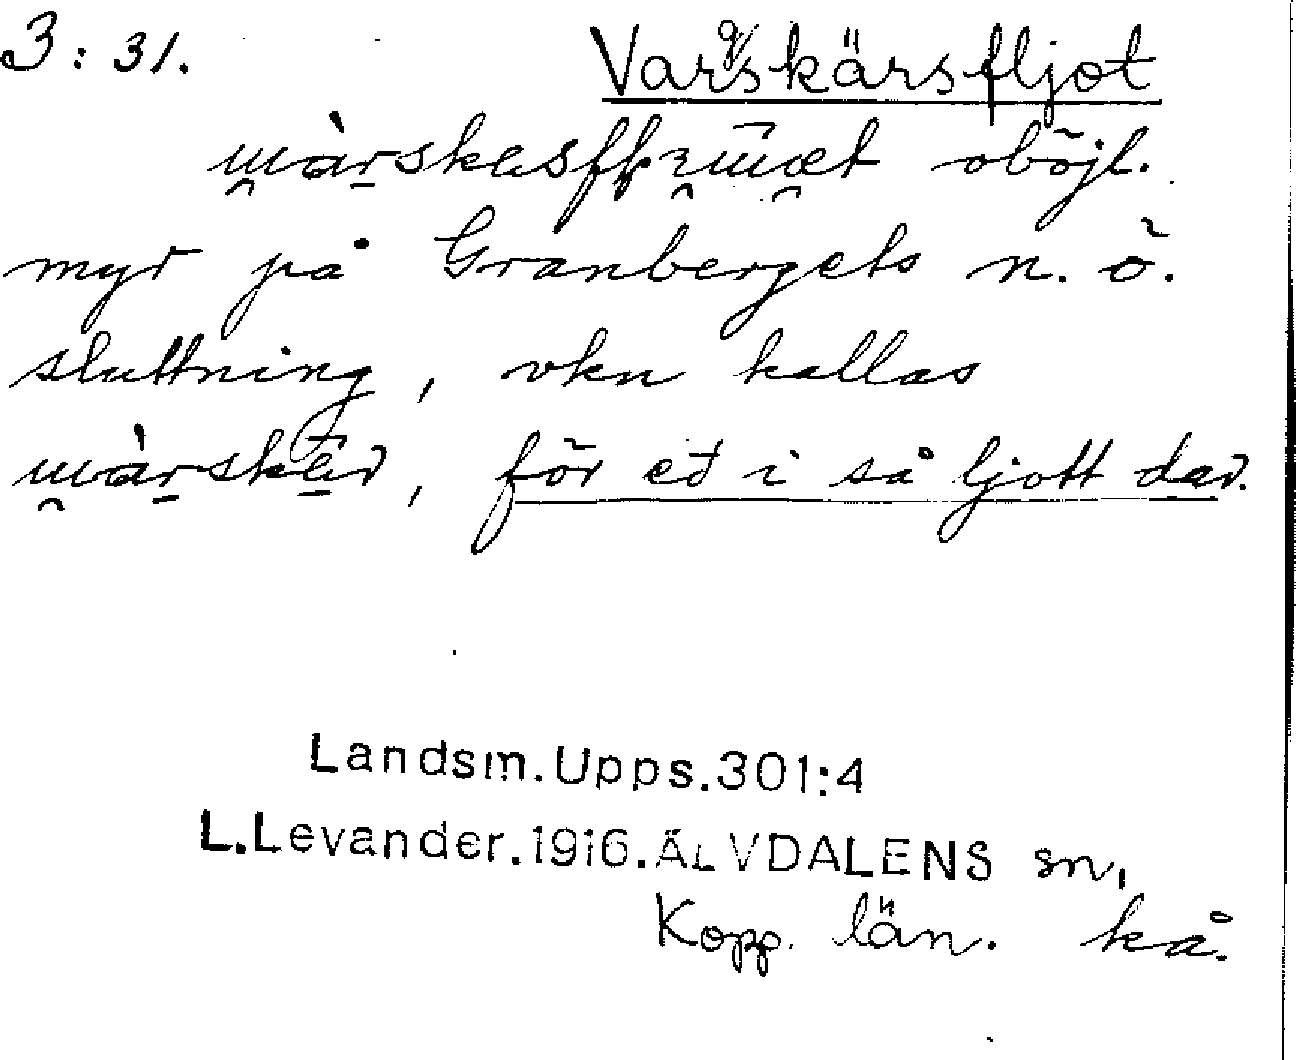 3:31.
Vargskärsfljot
oböjl.
myr på Granbergets n. ö.
sluttning, vkn kallas
för eð i så ljott dar.
Landsm.Upps.301:4
L.Levander.1916.ÄLVDALENS sn,
Kopp. län. kå.